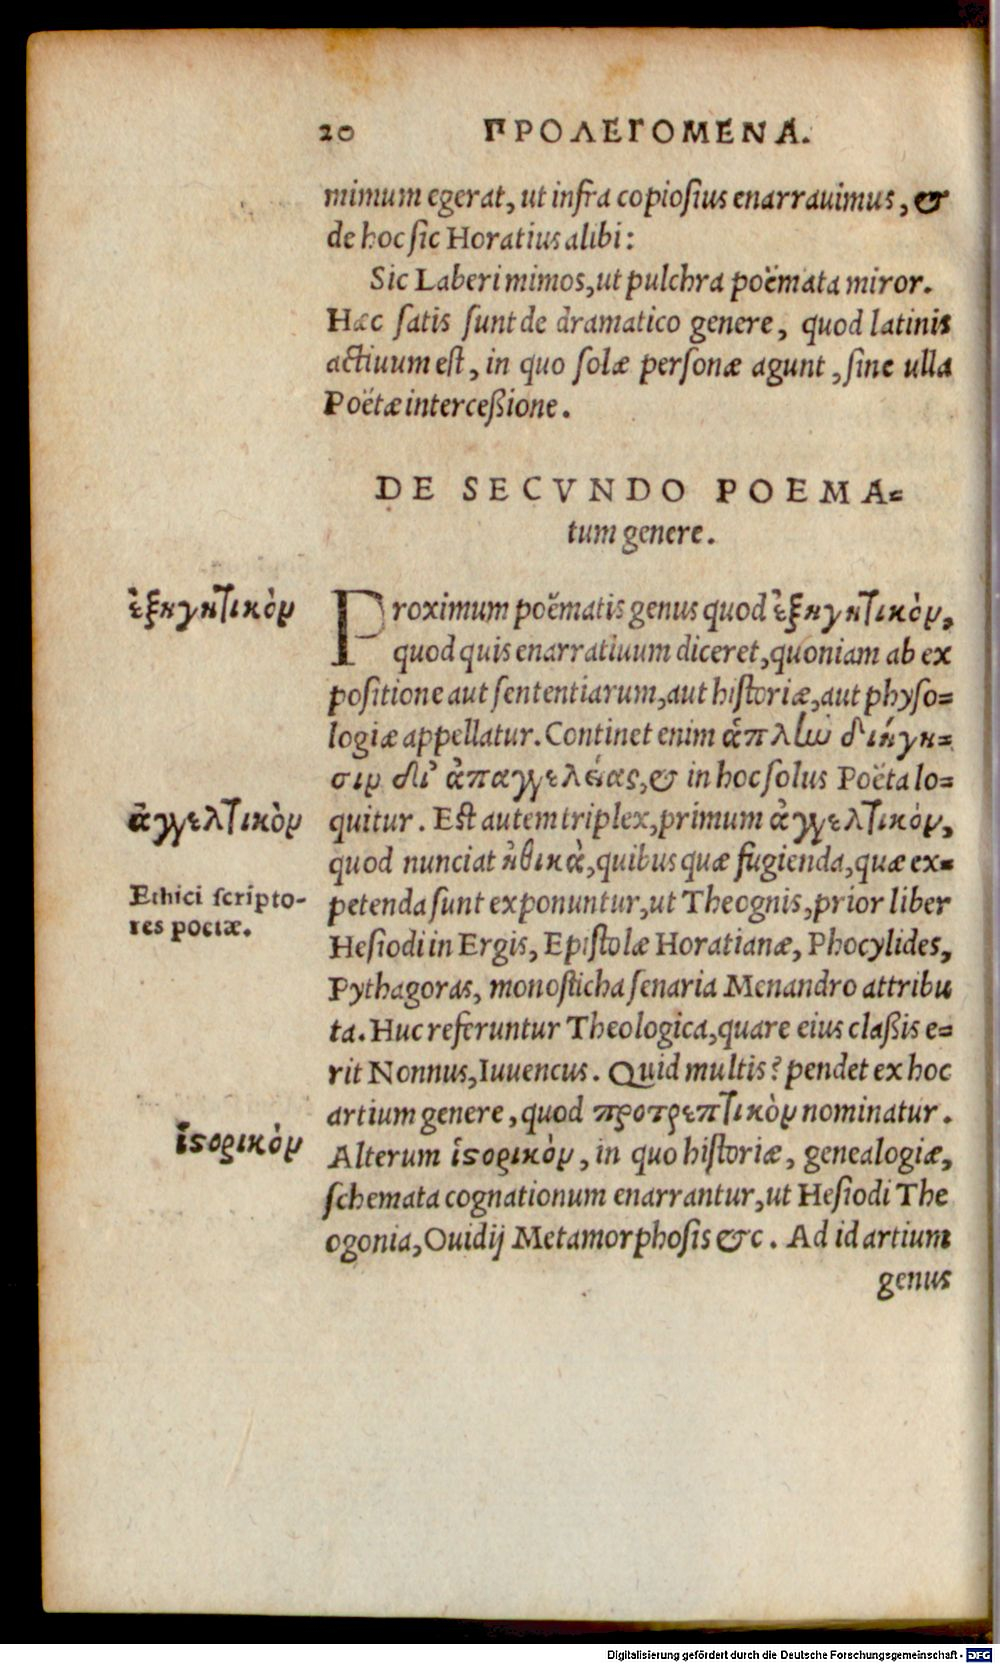 20 ΠΡΟΛΕΓΟΜΕΝΑ.
mimum egerat, ut infra copiosius enarrauimus, &
de hoc sic Horatius alibi:
Sic Laberi mimos, ut pulchra poëmata miror.
Hæc satis sunt de dramatico genere, quod latinis
actiuum est, in quo solæ personæ agunt, sine ulla
Poëtæ intercessione.
DE SECVNDO POEMA=
tum genere.
ἐξηγητικὸν
Proximum poëmatis genus quod ἐξηγητικὸν,
quod quis enarratiuum diceret, quoniam ab ex
positione aut sententiarum, aut historiæ, aut physo=
logiæ appellatur. Continet enim ἁπλῶ διήγη=
σιν δι' ἀπαγγελίας, & in hoc solus Poëta lo=
ἀγγελτικὸν
quitur. Est autem triplex, primum ἀγγελτικὸν,
quod nunciat ἠθικὰ, quibus quæ fugienda, quæ ex=
Ethici scripto-
res poetæ.
petenda sunt exponuntur, ut Theognis, prior liber
Hesiodi in Ergis, Epistolæ Horatianæ, Phocylides,
Pythagoras, monosticha senaria Menandro attribu
ta. Huc referuntur Theologica, quare eius classis e=
rit Nonnus, Iuuencus. Quid multis? pendet ex hoc
artium genere, quod προτρεπτικὸν nominatur.
ἱστορικὸν
Alterum ἱστορικὸν, in quo historiæ, genealogiæ,
schemata cognationum enarrantur, ut Hesiodi The
ogonia, Ouidij Metamorphosis &c. Ad id artium
genus
Digitalisierung gefördert durch die Deutsche Forschungsgemeinschaft - DFG